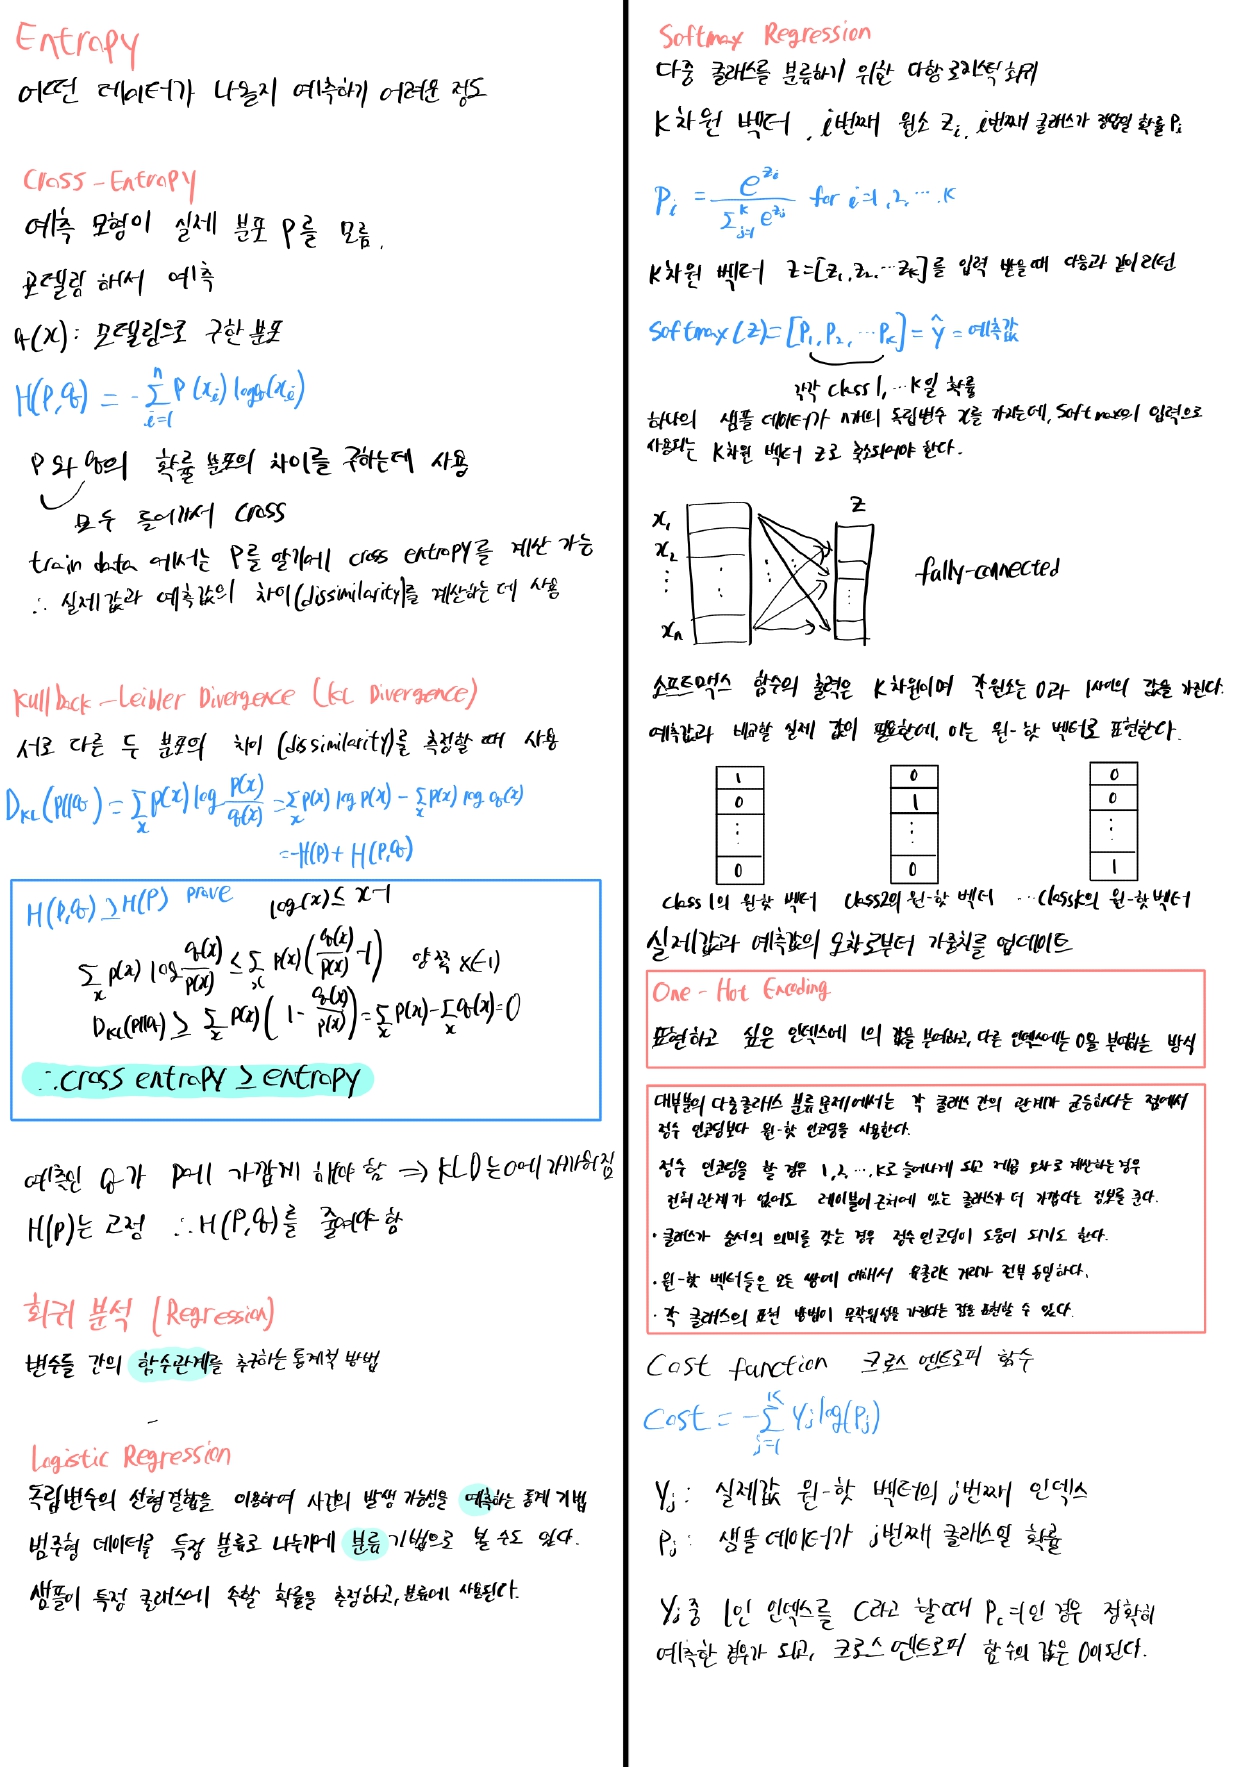 Entropy
어떤 데이터가 나올지 예측하기 어려운 정도
Cross-Entropy
예측 모형이 실제 분포 P를 모름,
모델링 해서 예측
q(x): 모델링으로 구한 분포
H(P,q) = -∑_{i=1}^{n} P(x_i) log q(x_i)
P와 q의 확률 분포의 차이를 구하는데 사용
모두 들어가서 cross
train data 에서는 P를 알기에 cross entropy를 계산 가능
∴ 실제값과 예측값의 차이(dissimilarity)를 계산하는 데 사용
Kullback-Leibler Divergence (KL Divergence)
서로 다른 두 분포의 차이 (dissimilarity)를 측정할 때 사용
D_KL(P||q) = ∑_x p(x) log p(x)/q(x) = ∑_x p(x) log p(x) - ∑_x p(x) log q(x)
= -H(p) + H(P,q)
H(P,q) ≥ H(P) prove log(x) ≤ x-1
∑_x p(x) log q(x)/p(x) ≤ ∑_x p(x)(q(x)/p(x) -1) 양쪽 x(-1)
D_KL(p||q) ≥ ∑_x p(x)(1 - q(x)/p(x)) = ∑_x p(x) - ∑_x q(x) = 0
∴ cross entropy ≥ entropy
예측인 Q가 P에 가깝게 해야 함 ⇒ KLD는 0에 가까워짐
H(p)는 고정 ∴ H(P,q)를 줄여야 함
회귀 분석 (Regression)
변수들 간의 함수관계를 추구하는 통계적 방법
Logistic Regression
독립변수의 선형결합을 이용하여 사건의 발생 가능성을 예측하는 통계 기법
범주형 데이터를 특정 분류로 나누기에 분류 기법으로 볼 수도 있다.
샘플이 특정 클래스에 속할 확률을 추정하고, 분류에 사용된다.
Softmax Regression
다중 클래스를 분류하기 위한 다항 로지스틱 회귀
K차원 벡터, i번째 원소 z_i, i번째 클래스가 정답일 확률 P_i
P_i = e^{z_i} / ∑_{j=1}^{K} e^{z_j} for i=1,2,…K
K차원 벡터 Z=[z_1,z_2,…z_K]를 입력 받을때 다음과 같이 리턴
Softmax(z) = [P_1, P_2, …P_K] = ŷ = 예측값
각각 class 1, …K일 확률
하나의 샘플 데이터가 n개의 독립변수 x를 가지는데, Softmax의 입력으로
사용되는 K차원 벡터 Z로 축소되어야 한다.
x_1
x_2
⋮
x_n
z
fully-connected
소프트맥스 함수의 출력은 K차원이며 각 원소는 0과 1사이의 값을 가진다.
예측값과 비교할 실제 값이 필요한데, 이는 원-핫 벡터로 표현한다.
1 0 0
0 1 0
⋮ ⋮ ⋮
0 0 1
class 1의 원-핫 벡터 class2의 원-핫 벡터 …classk의 원-핫 벡터
실제값과 예측값의 오차로부터 가중치를 업데이트
One-Hot Encoding
표현하고 싶은 인덱스에 1의 값을 부여하고, 다른 인덱스에는 0을 부여하는 방식
대부분의 다중클래스 분류 문제에서는 각 클래스 간의 관계가 균등하다는 점에서
정수 인코딩보다 원-핫 인코딩을 사용한다.
정수 인코딩을 할 경우 1,2,…,K로 늘어나게 되고 제곱 오차로 계산하는 경우
전혀 관계가 없어도 레이블이 근처에 있는 클래스가 더 가깝다는 정보를 준다.
· 클래스가 순서의 의미를 갖는 경우 정수 인코딩이 도움이 되기도 한다.
· 원-핫 벡터들은 모든 쌍에 대해서 유클리드 거리가 전부 동일하다.
· 각 클래스의 표현 방법이 무작위성을 가진다는 점을 표현할 수 있다.
Cost function 크로스 엔트로피 함수
Cost = -∑_{j=1}^{K} Y_j log(P_j)
Y_j : 실제값 원-핫 벡터의 j번째 인덱스
P_j : 샘플 데이터가 j번째 클래스일 확률
Y_j 중 1인 인덱스를 C라고 할때 P_c=1인 경우 정확히
예측한 경우가 되고, 크로스 엔트로피 함수의 값은 0이 된다.